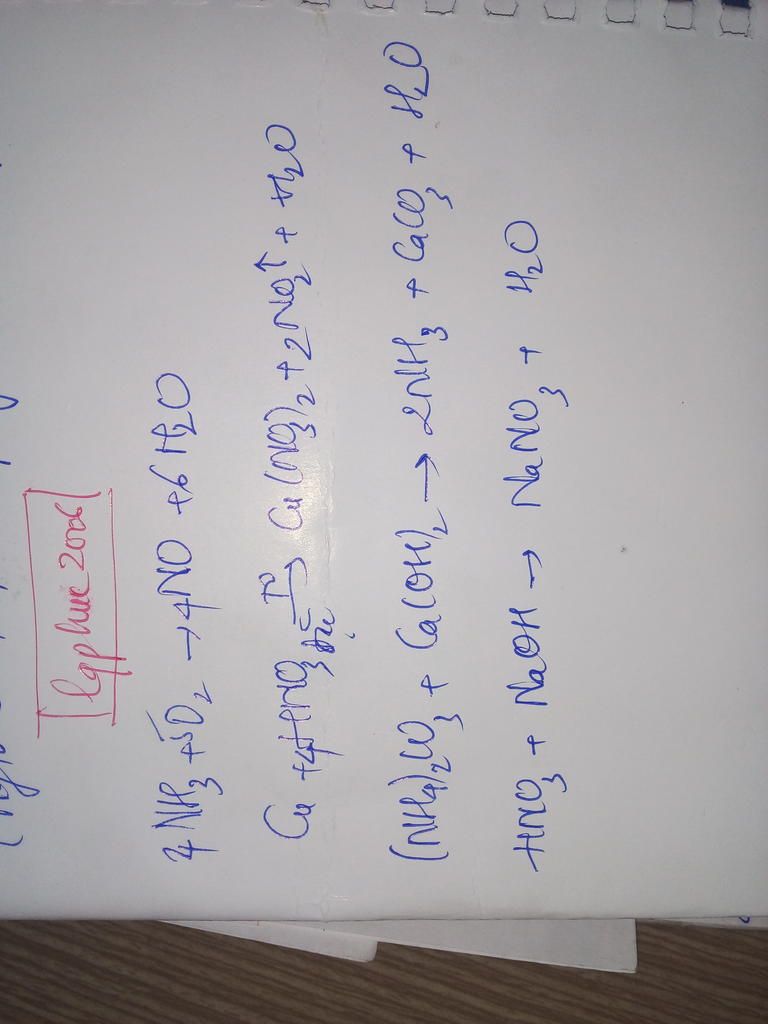 lgphuc2006
4NH₃ + 5O₂ → 4NO + 6H₂O
Cu + 4HNO₃ đặc →t⁰ Cu(NO₃)₂ + 2NO₂↑ + H₂O
(NH₄)₂CO₃ + Ca(OH)₂ → 2NH₃ + CaCO₃ + H₂O
HNO₃ + NaOH → NaNO₃ + H₂O